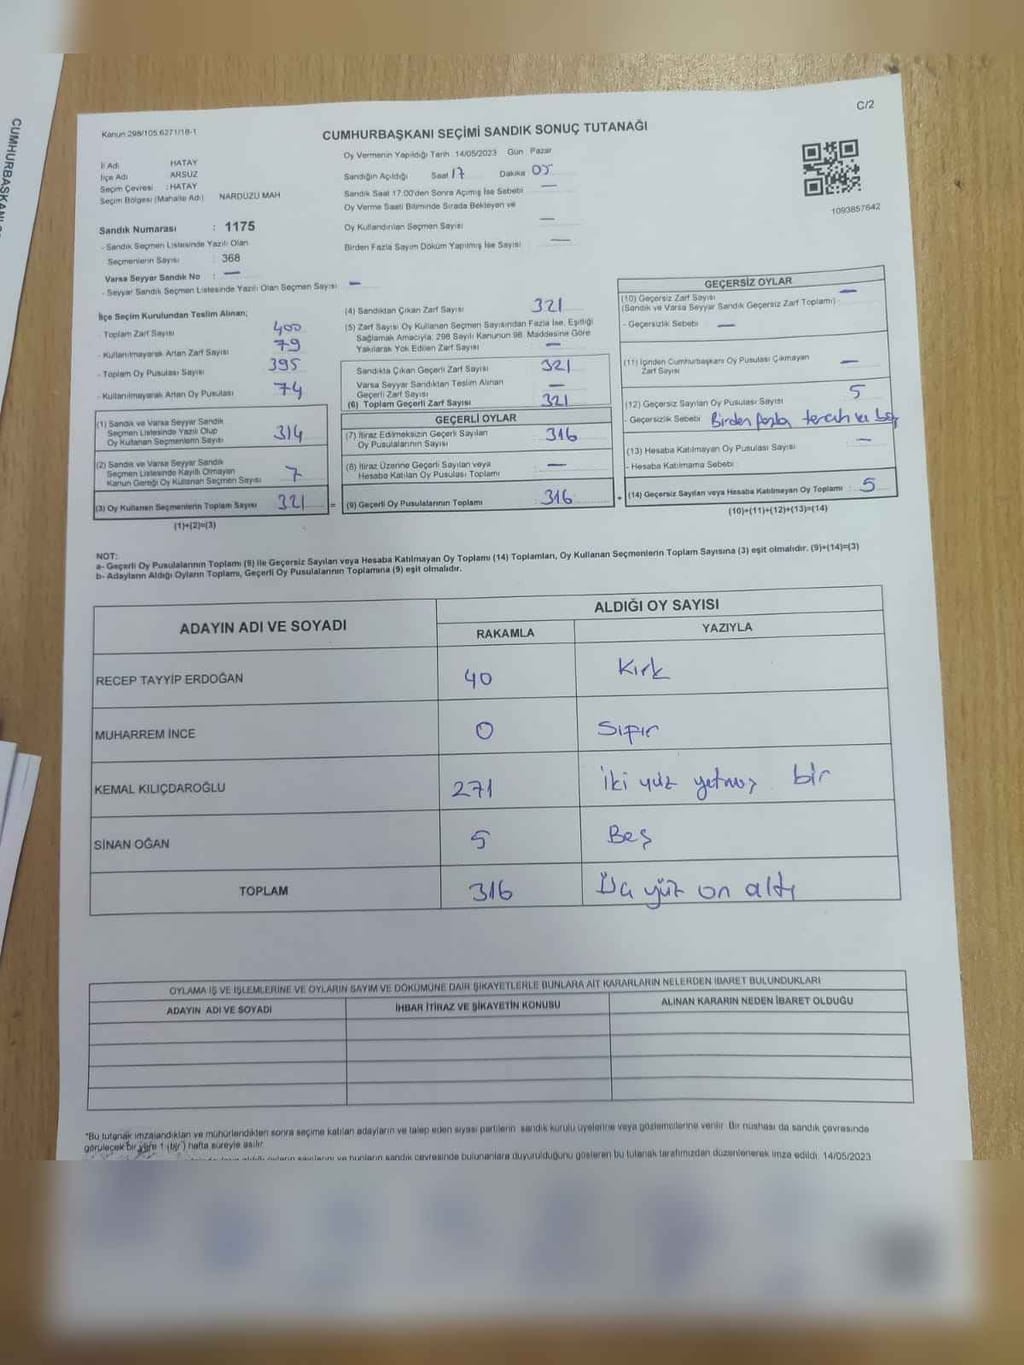 CUMHURBAŞKANI
C/2
Kanun 298/105.6271/18-1
CUMHURBAŞKANI SEÇİMİ SANDIK SONUÇ TUTANAĞI
İl Adı HATAY
İlçe Adı ARSUZ
Seçim Çevresi : HATAY
Seçim Bölgesi (Mahalle Adı) NARDUZU MAH
Oy Vermenin Yapıldığı Tarih 14/05/2023 Gün Pazar
Sandığın Açıldığı Saat 17 Dakika 05
Sandık Saat 17:00'den Sonra Açılmış İse Sebebi —
Oy Verme Saati Bitiminde Sırada Bekleyen ve
Oy Kullandırılan Seçmen Sayısı —
Birden Fazla Sayım Döküm Yapılmış İse Sayısı —
1093857642
Sandık Numarası : 1175
- Sandık Seçmen Listesinde Yazılı Olan
Seçmenlerin Sayısı : 368
Varsa Seyyar Sandık No : —
- Seyyar Sandık Seçmen Listesinde Yazılı Olan Seçmen Sayısı —
İlçe Seçim Kurulundan Teslim Alınan;
- Toplam Zarf Sayısı 400
- Kullanılmayarak Artan Zarf Sayısı 79
- Toplam Oy Pusulası Sayısı 395
- Kullanılmayarak Artan Oy Pusulası 74
(1) Sandık ve Varsa Seyyar Sandık
Seçmen Listesinde Yazılı Olup
Oy Kullanan Seçmenlerin Sayısı 314
(2) Sandık ve Varsa Seyyar Sandık
Seçmen Listesinde Kayıtlı Olmayan
Kanun Gereği Oy Kullanan Seçmen Sayısı 7
(3) Oy Kullanan Seçmenlerin Toplam Sayısı 321
(1)+(2)=(3)
(4) Sandıktan Çıkan Zarf Sayısı 321
(5) Zarf Sayısı Oy Kullanan Seçmen Sayısından Fazla İse, Eşitliği
Sağlamak Amacıyla, 298 Sayılı Kanunun 98. Maddesine Göre
Yakılarak Yok Edilen Zarf Sayısı —
Sandıkta Çıkan Geçerli Zarf Sayısı 321
Varsa Seyyar Sandıktan Teslim Alınan
Geçerli Zarf Sayısı —
(6) Toplam Geçerli Zarf Sayısı 321
GEÇERLİ OYLAR
(7) İtiraz Edilmeksizin Geçerli Sayılan
Oy Pusulalarının Sayısı 316
(8) İtiraz Üzerine Geçerli Sayılan veya
Hesaba Katılan Oy Pusulası Toplamı —
= (9) Geçerli Oy Pusulalarının Toplamı 316
GEÇERSİZ OYLAR
(10) Geçersiz Zarf Sayısı
(Sandık ve Varsa Seyyar Sandık Geçersiz Zarf Toplamı) —
- Geçersizlik Sebebi : —
(11) İçinden Cumhurbaşkanı Oy Pusulası Çıkmayan
Zarf Sayısı —
(12) Geçersiz Sayılan Oy Pusulası Sayısı 5
- Geçersizlik Sebebi Birden fazla tercih ve boş
(13) Hesaba Katılmayan Oy Pusulası Sayısı —
- Hesaba Katılmama Sebebi
+ (14) Geçersiz Sayılan veya Hesaba Katılmayan Oy Toplamı : 5
(10)+(11)+(12)+(13)=(14)
NOT:
a- Geçerli Oy Pusulalarının Toplamı (9) ile Geçersiz Sayılan veya Hesaba Katılmayan Oy Toplamı (14) Toplamları, Oy Kullanan Seçmenlerin Toplam Sayısına (3) eşit olmalıdır. (9)+(14)=(3)
b- Adayların Aldığı Oyların Toplamı, Geçerli Oy Pusulalarının Toplamına (9) eşit olmalıdır.
ADAYIN ADI VE SOYADI
ALDIĞI OY SAYISI
RAKAMLA YAZIYLA
RECEP TAYYİP ERDOĞAN 40 Kırk
MUHARREM İNCE 0 Sıfır
KEMAL KILIÇDAROĞLU 271 İki yüz yetmiş bir
SİNAN OĞAN 5 Beş
TOPLAM 316 Üç yüz on altı
OYLAMA İŞ VE İŞLEMLERİNE VE OYLARIN SAYIM VE DÖKÜMÜNE DAİR ŞİKAYETLERLE BUNLARA AİT KARARLARIN NELERDEN İBARET BULUNDUKLARI
ADAYIN ADI VE SOYADI
İHBAR İTİRAZ VE ŞİKAYETİN KONUSU
ALINAN KARARIN NEDEN İBARET OLDUĞU
*Bu tutanak imzalandıktan ve mühürlendikten sonra seçime katılan adayların ve talep eden siyasi partilerin sandık kurulu üyelerine veya gözlemcilerine verilir. Bir nüshası da sandık çevresinde
görülecek bir yere 1 (bir) hafta süreyle asılır.
oyların sayılarını ve bunların sandık çevresinde bulunanlara duyurulduğunu gösteren bu tutanak tarafımızdan düzenlenerek imza edildi. 14/05/2023